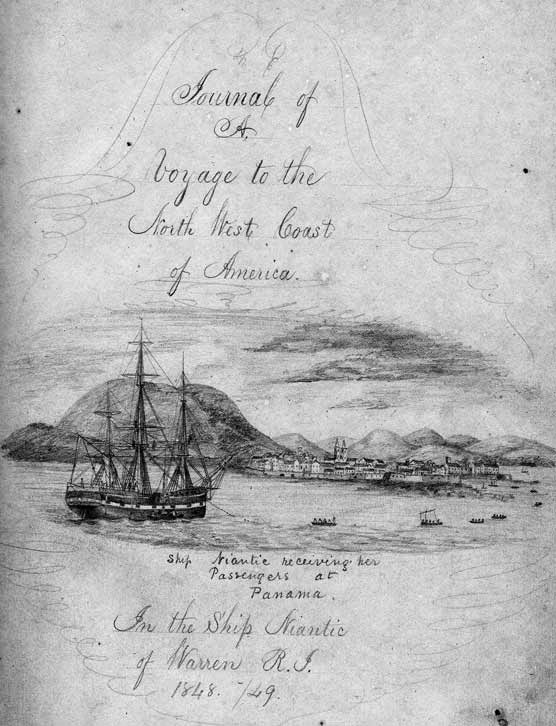 Journal of
A
Voyage to the
North West Coast
of America.
Ship Niantic receiving her
Passengers at
Panama.
In the Ship Niantic
of Warren R.I.
1848. -/49.